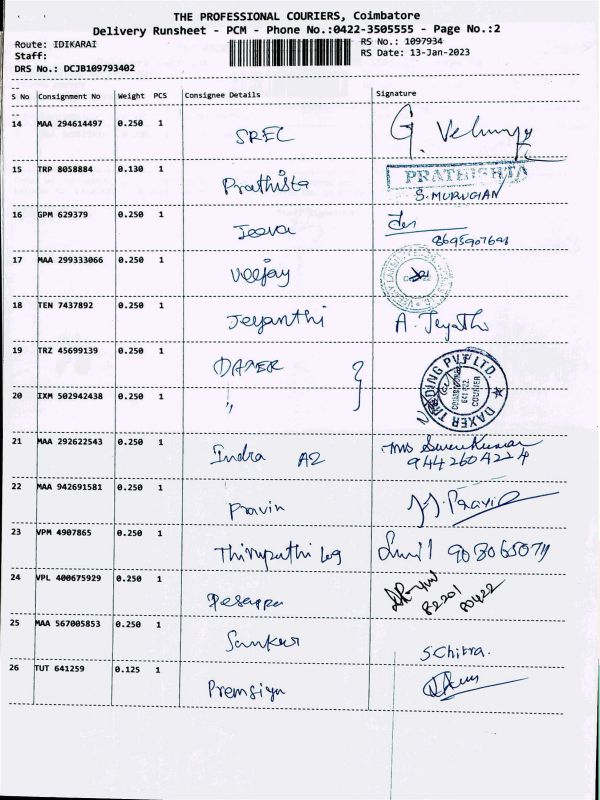 THE PROFESSIONAL COURIERS, Coimbatore
Delivery Runsheet - PCM - Phone No.:0422-3505555 - Page No.:2
Route: IDIKARAI
RS No.: 1097934
Staff:
RS Date: 13-Jan-2023
DRS No.: DCJB109793402
S No Consignment No Weight PCS Consignee Details Signature
14 MAA 294614497 0.250 1 SREC G.
15 TRP 8058884 0.130 1 Prathista PRATHISHTA
S. MURUGIAN
16 GPM 629379 0.250 1 Jeeva
17 MAA 299333066 0.250 1 Veejay
18 TEN 7437892 0.250 1 Jeyanthi A. Jeyathi
19 TRZ 45699139 0.250 1 DAXER DAXER TRADING PVT LTD.
20 IXM 502942438 0.250 1 "
21 MAA 292622543 0.250 1 Indra A2
9442604224
22 MAA 942691581 0.250 1 Pravin
23 VPM 4907865 0.250 1 Thirupathi Log
24 VPL 400675929 0.250 1
82201
25 MAA 567005853 0.250 1 Sankar S.Chitra.
26 TUT 641259 0.125 1 Premsiya